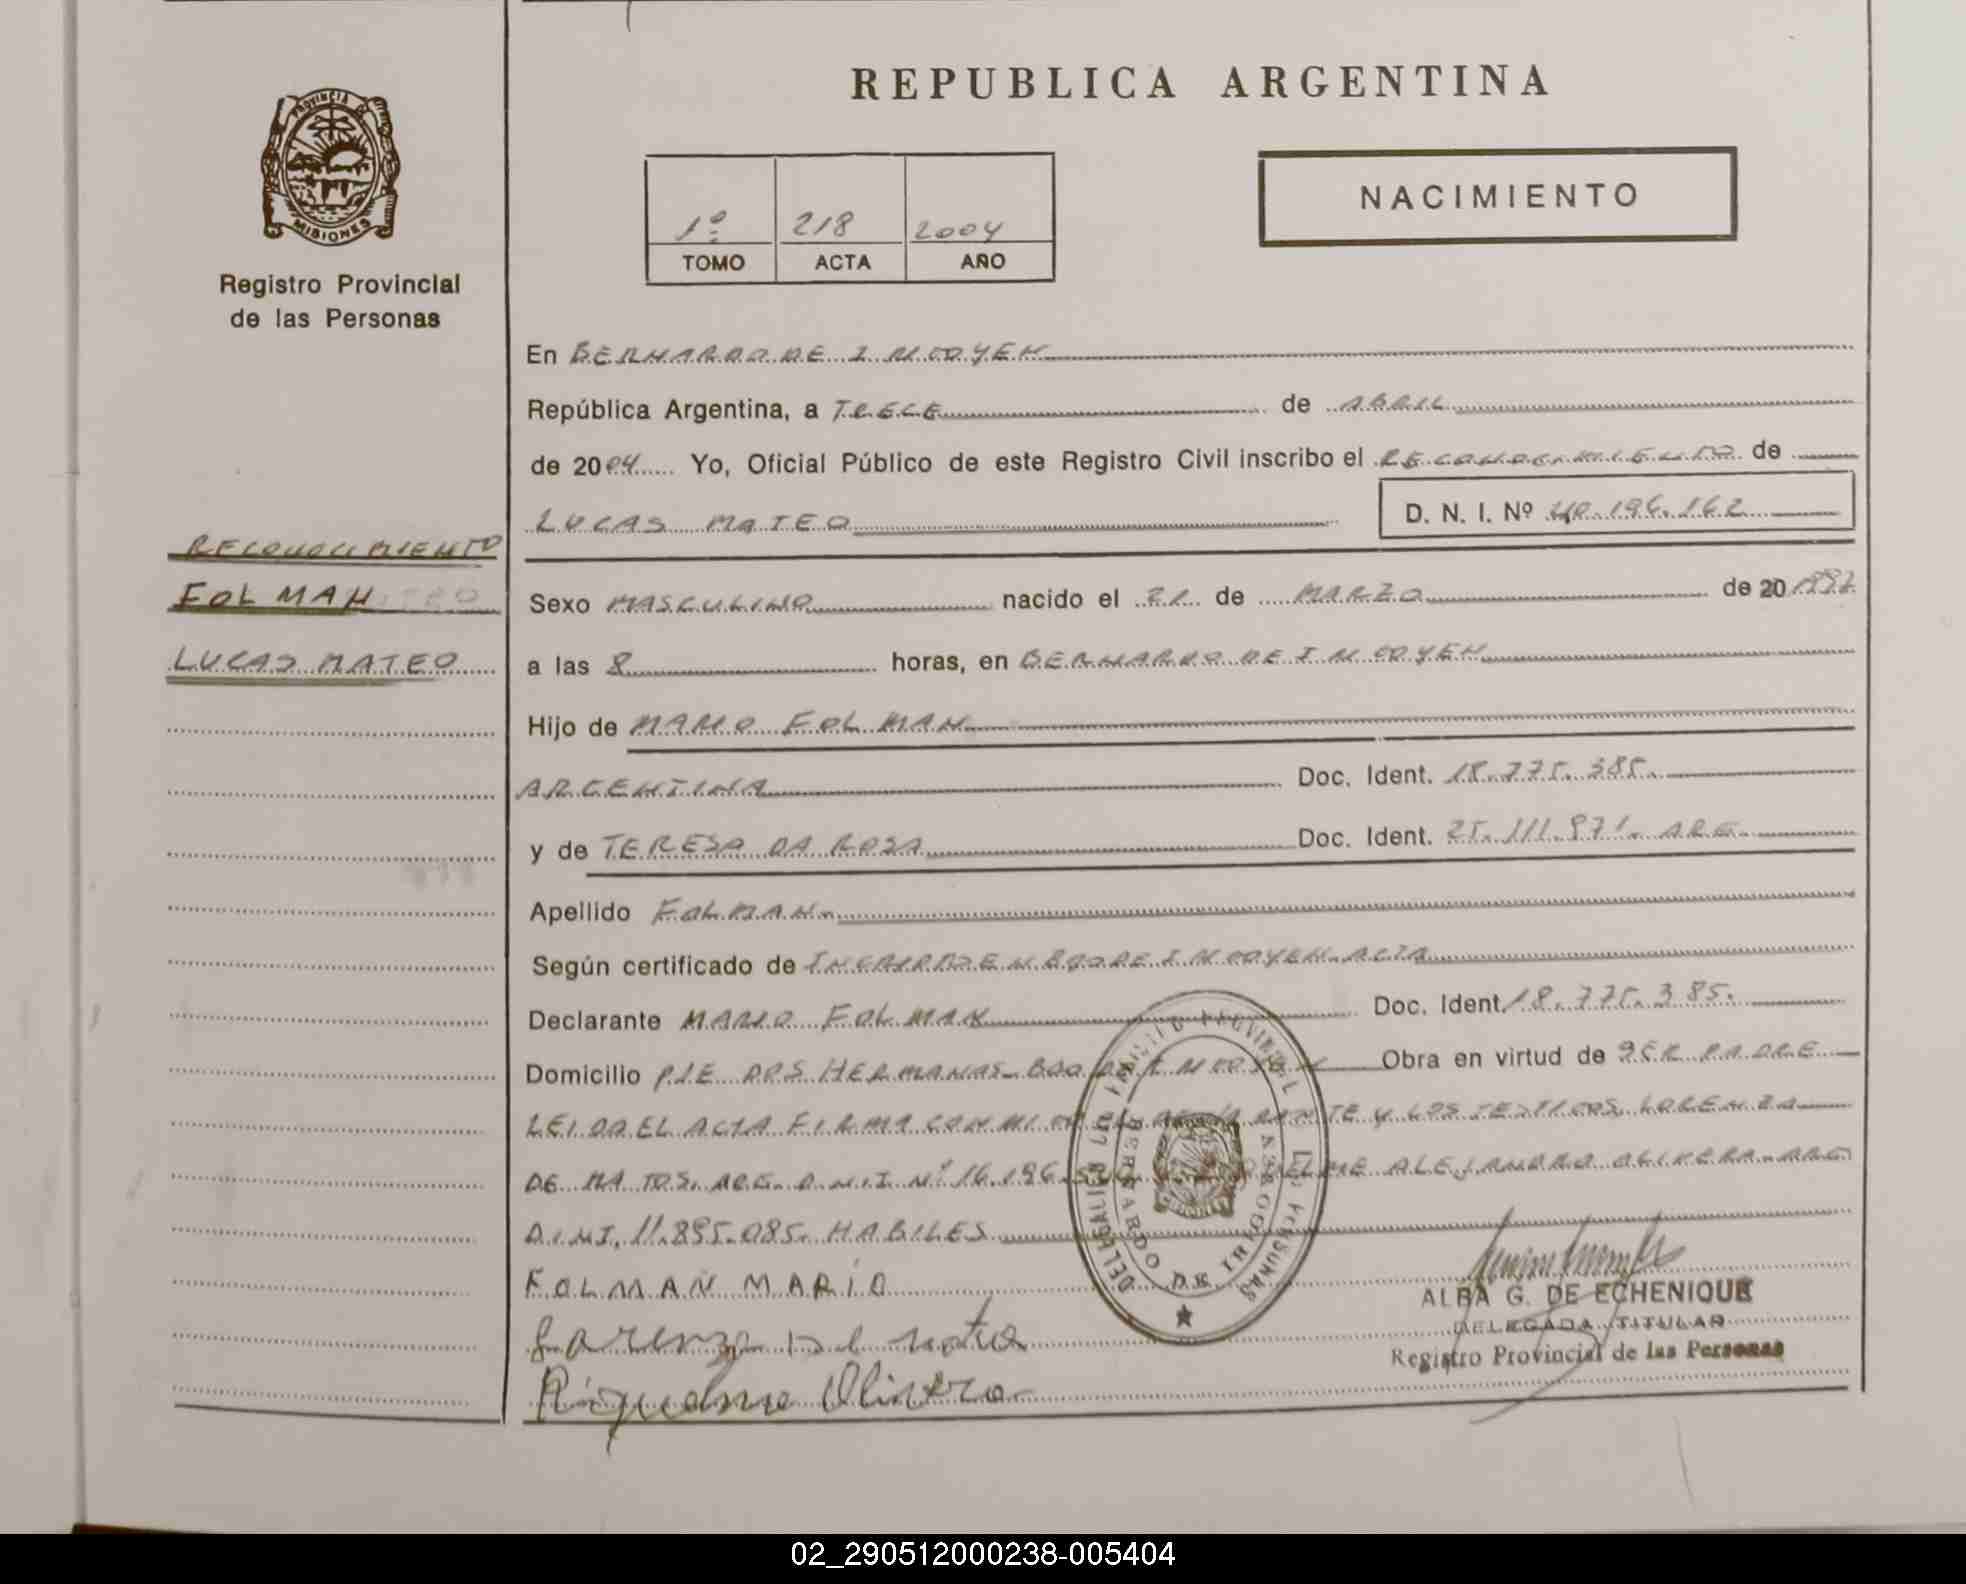 REPUBLICA ARGENTINA
PROVINCIA DE
MISIONES
Registro Provincial
de las Personas
1º 218 2004
TOMO ACTA AÑO
NACIMIENTO
En BERNARDO DE IRIGOYEN
República Argentina, a TRECE de ABRIL
de 2004 Yo, Oficial Público de este Registro Civil inscribo el RECONOCIMIENTO de
LUCAS MATEO D. N. I. Nº 40.196.162
RECONOCIMIENTO
FOLMAN
LUCAS MATEO
Sexo MASCULINO nacido el 21 de MARZO de 20 1997
a las 8 horas, en BERNARDO DE IRIGOYEN
Hijo de MARIO FOLMAN
ARGENTINA Doc. Ident. 18.775.385.
y de TERESA DA ROSA Doc. Ident. 25.111.971. ARG.
Apellido FOLMAN
Según certificado de INSCRIPTO EN BDO DE IRIGOYEN ACTA
Declarante MARIO FOLMAN Doc. Ident. 18.775.385.
Domicilio PJE DOS HERMANAS BDO DE IRIGOYEN Obra en virtud de SER PADRE
LEIDA EL ACTA FIRMA CONMIGO EL DECLARANTE Y LOS TESTIGOS LORENZA
DE MATOS ARG. D.N.I Nº 16.196. ALEJANDRO OLIVERA ARG
D.N.I. 11.895.085. HABILES
FOLMAN MARIO
Lorenza De
Riquelme
DELEGACION DEL REGISTRO PROVINCIAL DE LAS PERSONAS
BERNARDO DE IRIGOYEN
MISIONES
ALBA G. DE ECHENIQUE
DELEGADA TITULAR
Registro Provincial de las Personas
02_290512000238-005404